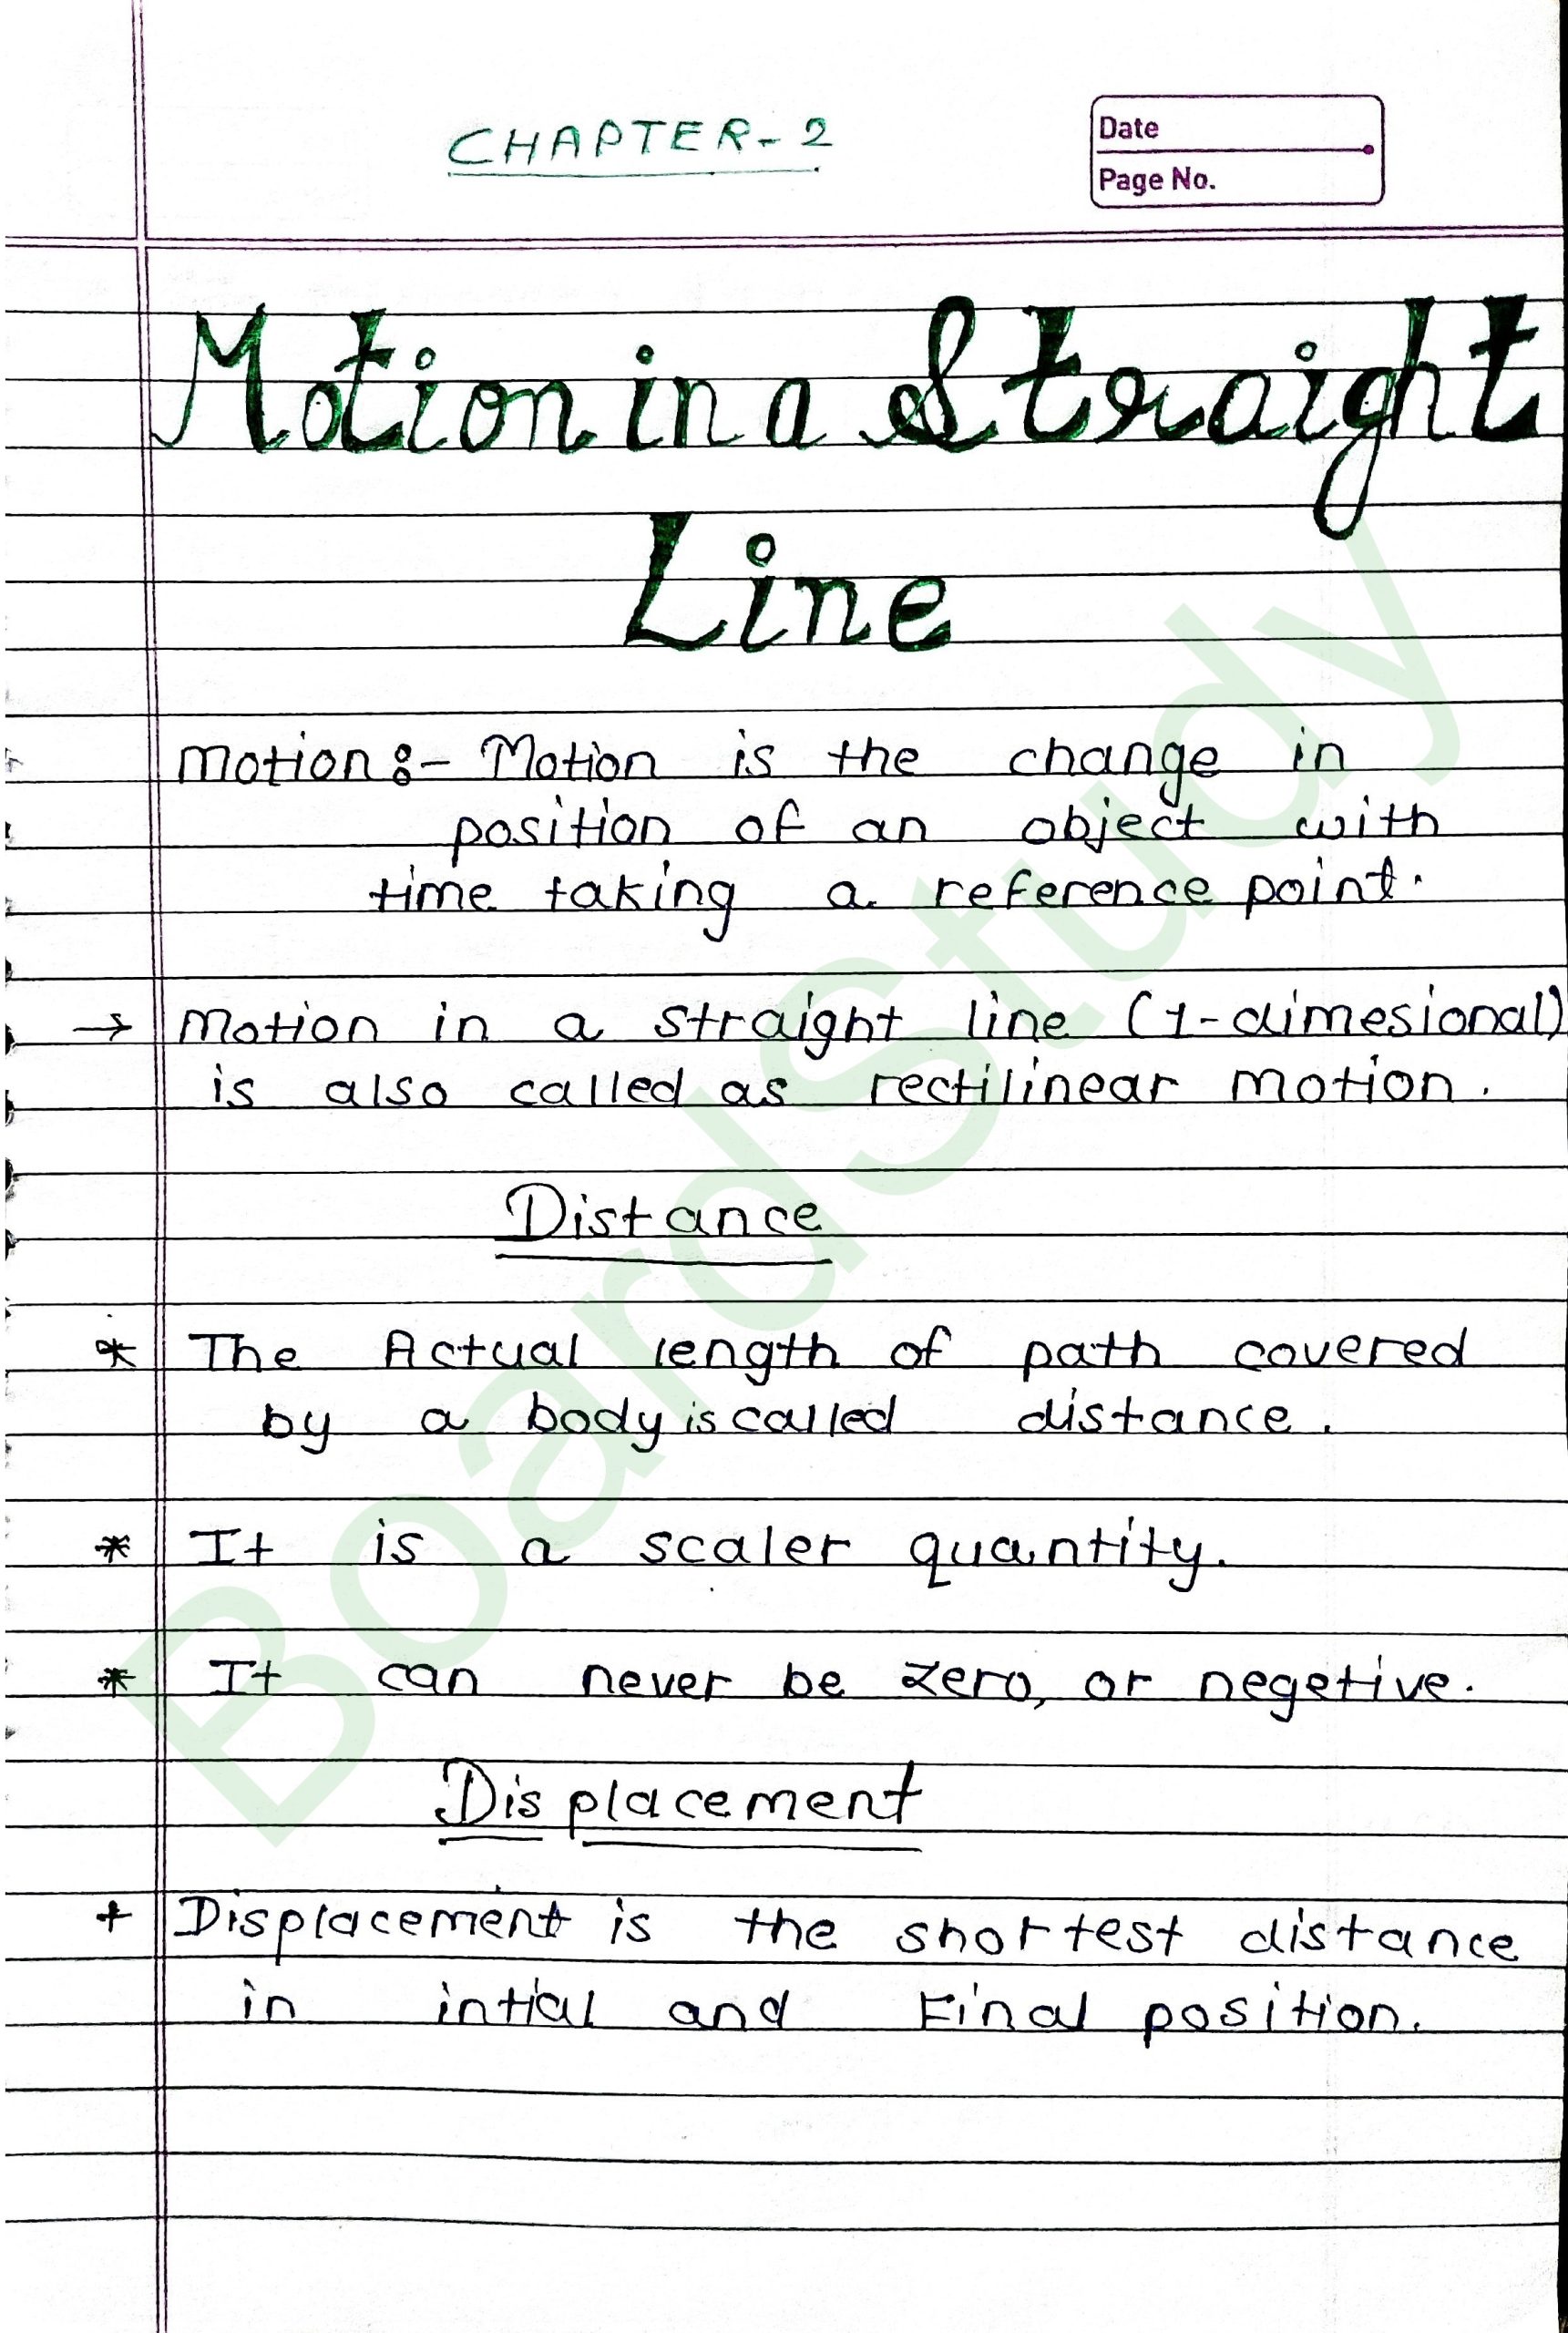 CHAPTER-2
Date
Page No.
Motion in a Straight
Line
Motion :- Motion is the change in
position of an object with
time taking a reference point.
→ Motion in a straight line (1-dimesional)
is also called as rectilinear motion.
Distance
* The Actual length of path covered
by a body is called distance.
* It is a scaler quantity.
* It can never be zero, or negetive.
Displacement
+ Displacement is the shortest distance
in intial and Final position.
BoardStudy